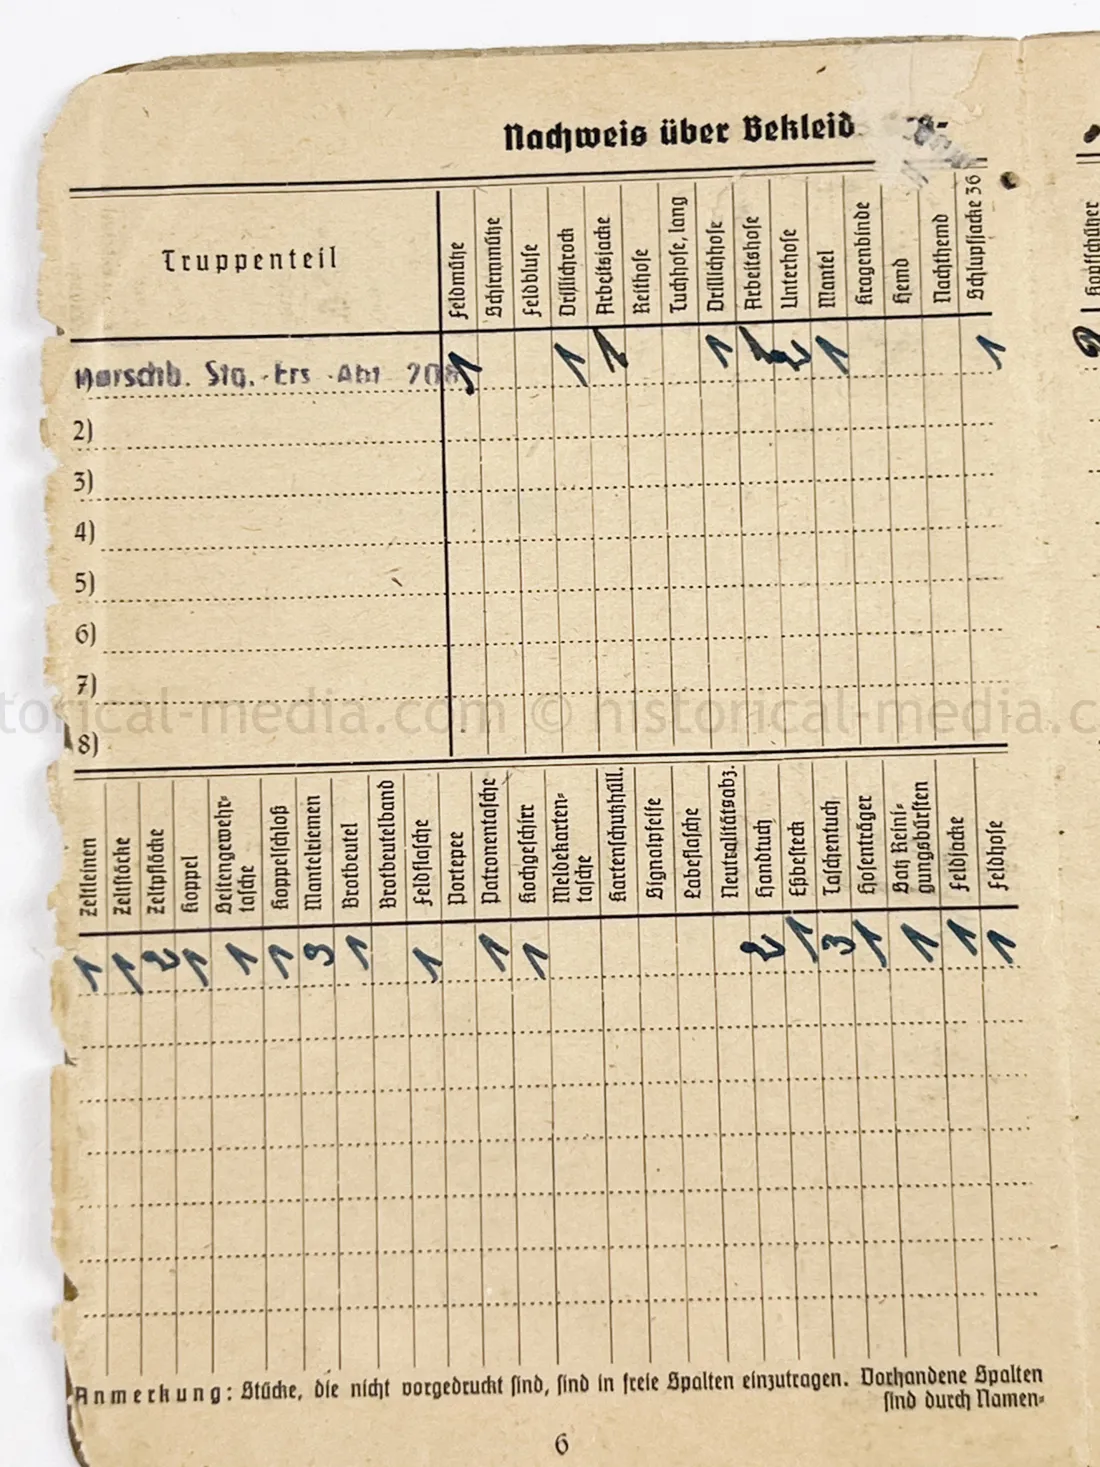 Nachweis über Bekleid
Truppenteil
Feldmütze
Schirmmütze
Feldbluse
Drillichrock
Arbeitsjacke
Reithose
Tuchhose, lang
Drillichhose
Arbeitshose
Unterhose
Mantel
Kragenbinde
Hemd
Nachthemd
Schlupfjacke 36
Kopfschützer
Marschb. Stg. Ers Abt 708 1 1 1 1 2 1 1
2)
3)
4)
5)
6)
7)
historical-media.com © historical-media.c
8)
Zeltleinen
Zeltstöcke
Zeltpflöcke
Koppel
Seitengewehr-
tasche
Koppelschloß
Mantelriemen
Brotbeutel
Brotbeutelband
Feldflasche
Portepee
Patronentasche
Kochgeschirr
Meldekarten-
tasche
Kartenschutzhüll.
Signalpfeife
Labeflasche
Neutralitätsabz.
Handtuch
Eßbesteck
Taschentuch
Hosenträger
Satz Reini-
gungsbürsten
Feldjacke
Feldhose
1 1 2 1 1 1 3 1 1 1 1 2 1 3 1 1 1 1
Anmerkung: Stücke, die nicht vorgedruckt sind, sind in freie Spalten einzutragen. Vorhandene Spalten
sind durch Namen-
6